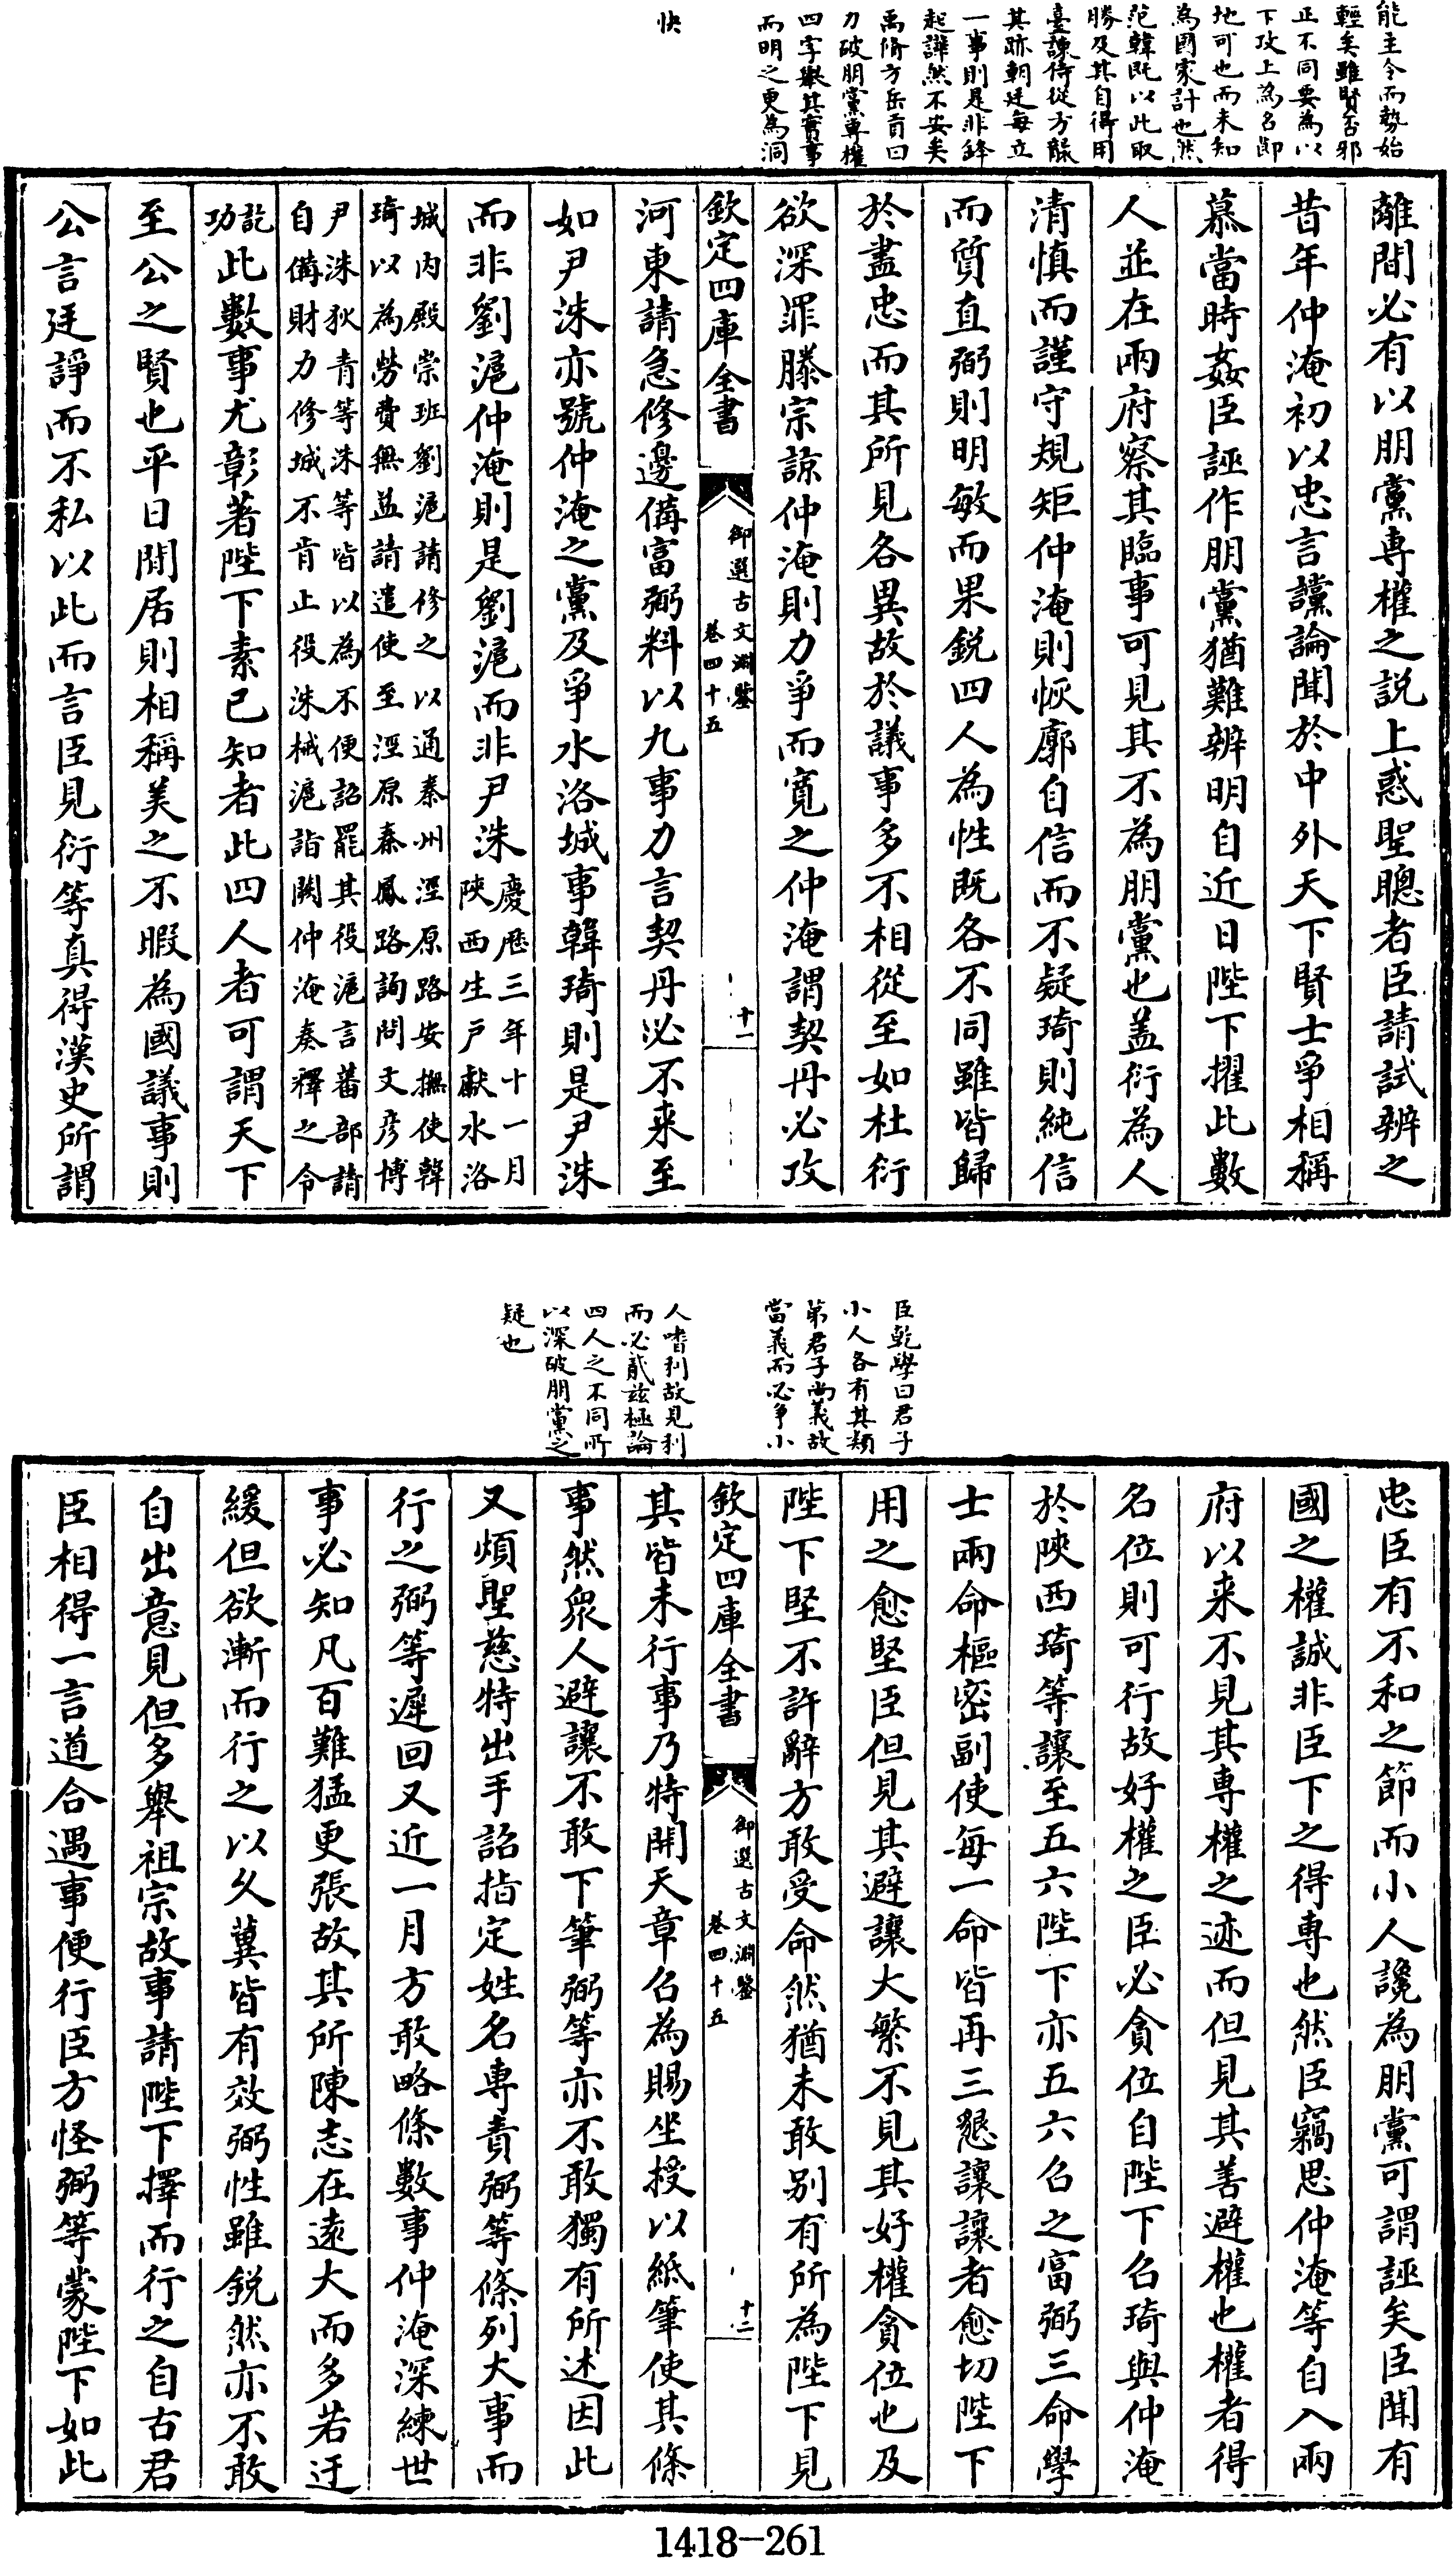 能主令而勢始
輕矣雖賢否邪
正不同要為以
下攻上為名節
地可也而未知
為國家計也然
范韓既以此取
勝及其自得用
臺諫侍從方𨻶
其跡朝廷每立
一事則是非鋒
起譁然不安矣
禹脩方岳貢曰
力破朋黨專權
四字舉其實事
而明之更為洞
快
離間必有以朋黨專權之說上惑聖聰者臣請試辨之
昔年仲淹初以忠言讜論聞於中外天下賢士爭相稱
慕當時姦臣誣作朋黨猶難辨明自近日陛下擢此數
人並在兩府察其臨事可見其不為朋黨也盖衍為人
清慎而謹守規矩仲淹則恢廓自信而不疑琦則純信
而質直弼則明敏而果鋭四人為性既各不同雖皆歸
於盡忠而其所見各異故於議事多不相從至如杜衍
欲深罪滕宗諒仲淹則力爭而寬之仲淹謂契丹必攻
欽定四庫全書 御選古文淵鑒 卷四十五 十一
河東請急修邊備富弼料以九事力言契丹必不来至
如尹洙亦號仲淹之黨及爭水洛城事韓琦則是尹洙
而非劉滬仲淹則是劉滬而非尹洙慶厯三年十一月
陜西生戸獻水洛
城内殿崇班劉滬請修之以通秦州涇原路安撫使韓
琦以為勞費無益請遣使至涇原秦鳳路詢問文彦博
尹洙狄青等洙等皆以為不便詔罷其役滬言蕃部請
自備財力修城不肯止役洙械滬詣闕仲淹奏釋之令
訖
功此數事尤彰著陛下素已知者此四人者可謂天下
至公之賢也平日閒居則相稱美之不暇為國議事則
公言廷諍而不私以此而言臣見衍等真得漢史所謂
臣乾學曰君子
小人各有其類
第君子尚義故
當義而必争小
人嗜利故見利
而必貳兹極論
四人之不同所
以深破朋黨之
疑也
忠臣有不和之節而小人讒為朋黨可謂誣矣臣聞有
國之權誠非臣下之得専也然臣竊思仲淹等自入兩
府以来不見其専權之迹而但見其善避權也權者得
名位則可行故好權之臣必貪位自陛下召琦與仲淹
於陜西琦等讓至五六陛下亦五六召之富弼三命學
士兩命樞密副使每一命皆再三懇讓讓者愈切陛下
用之愈堅臣但見其避讓大繁不見其好權貪位也及
陛下堅不許辭方敢受命然猶未敢别有所為陛下見
欽定四庫全書 御選古文淵鑒 卷四十五 十二
其皆未行事乃特開天章召為賜坐授以紙筆使其條
事然衆人避讓不敢下筆弼等亦不敢獨有所述因此
又煩聖慈特出手詔指定姓名専責弼等條列大事而
行之弼等遲回又近一月方敢略條數事仲淹深練世
事必知凡百難猛更張故其所陳志在逺大而多若迂
緩但欲漸而行之以久冀皆有效弼性雖鋭然亦不敢
自出意見但多舉祖宗故事請陛下擇而行之自古君
臣相得一言道合遇事便行臣方怪弼等蒙陛下如此
1418-261